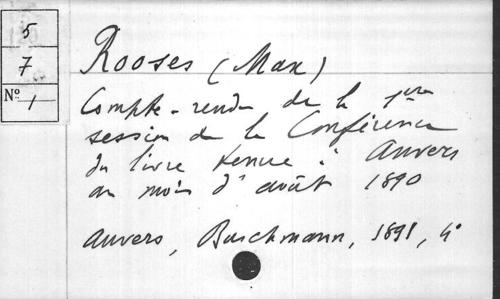 5
7
Nº 1
Rooses (Max)
Compte-rendu de la 1ère
session de la Conférence
du livre tenue à Anvers
au mois d'août 1890
Anvers, Buschmann, 1891, 4°